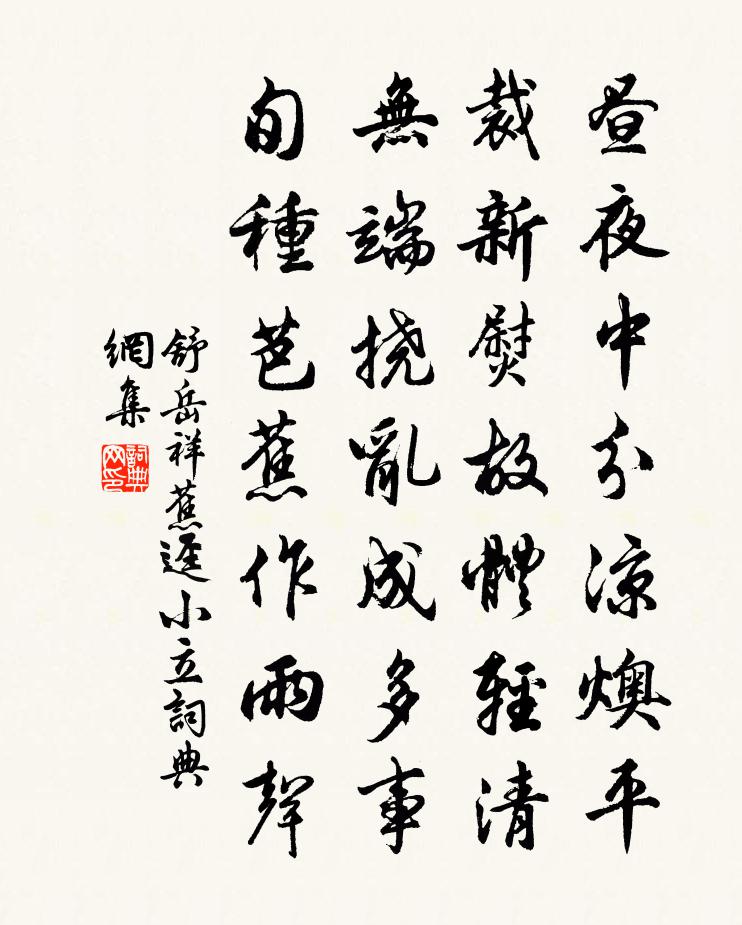 昼夜中分凉燠平
裁新熨故體輕清
無端挠亂成多事
旬種芭蕉作雨聲
舒岳祥蕉逕小立詞典
網集
詞典網印